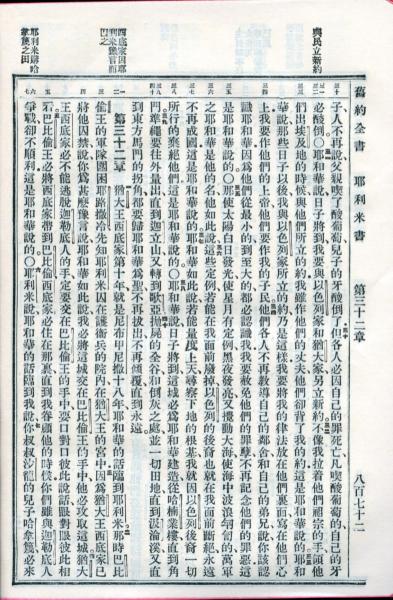 舊約全書 耶利米書 第三十二章 八百七十二
與民立新約
子、人不再說父親喫了酸葡萄兒子的牙酸倒了但各人必因自己的罪死亡凡喫酸葡萄的自己的牙
必酸倒○耶和華說日子將到我要與以色列家和猶大家另立新約不像我拉着他們祖宗的手領他
們出埃及地的時候與他們所立的約我雖作他們的丈夫他們卻背了我的約這是耶和華說的耶和
華說那些日子以後我與以色列家所立的約乃是這樣我要將我的律法放在他們裏面寫在他們心
上我要作他們的上帝他們要作我的子民他們各人不再教導自己的鄰舍和自己的弟兄說你該認
識耶和華因爲他們從最小的到至大的都必認識我我要赦免他們的罪孽不再記念他們的罪惡這
是耶和華說的○那使太陽白日發光使星月有定例黑夜發亮又攪動大海使海中波浪匉訇的萬軍
之耶和華是他的名他如此說這些定例若能在我面前廢掉以色列的後裔也就在我面前斷絕永遠
不再成國這是耶和華說的耶和華如此說若能量度上天尋察下地的根基我就因以色列後裔一切
所行的棄絕他們這是耶和華說的○耶和華說日子將到這城必爲耶和華建造從哈楠業樓直到角
門準繩要往外量出直到迦立山又轉到歌亞拋屍的全谷和倒灰之處並一切田地直到汲淪溪又直
到東方馬門的拐角都要歸耶和華爲聖不再拔出不再傾覆直到永遠
西底家因耶
利米豫言而
囚之
第三十二章 猶大王西底家第十年就是尼布甲尼撒十八年耶和華的話臨到耶利米那時巴比
倫王的軍隊圍困耶路撒冷先知耶利米囚在護衛兵的院內在猶大王的宮中因爲猶大王西底家已
將他囚禁說你爲甚麼豫言說耶和華如此說我必將這城交在巴比倫王的手中他必攻取這城猶大
王西底家必不能逃脫迦勒底人的手定要交在巴比倫王的手中要口對口彼此說話眼對眼彼此相
看巴比倫王必將西底家帶到巴比倫西底家必住在那裏直到我眷顧他的時候你們雖與迦勒底人
耶利米購哈
拿篾之田
爭戰卻不順利這是耶和華說的○耶利米說耶和華的話臨到我說你叔叔沙龍的兒子哈拿篾必來